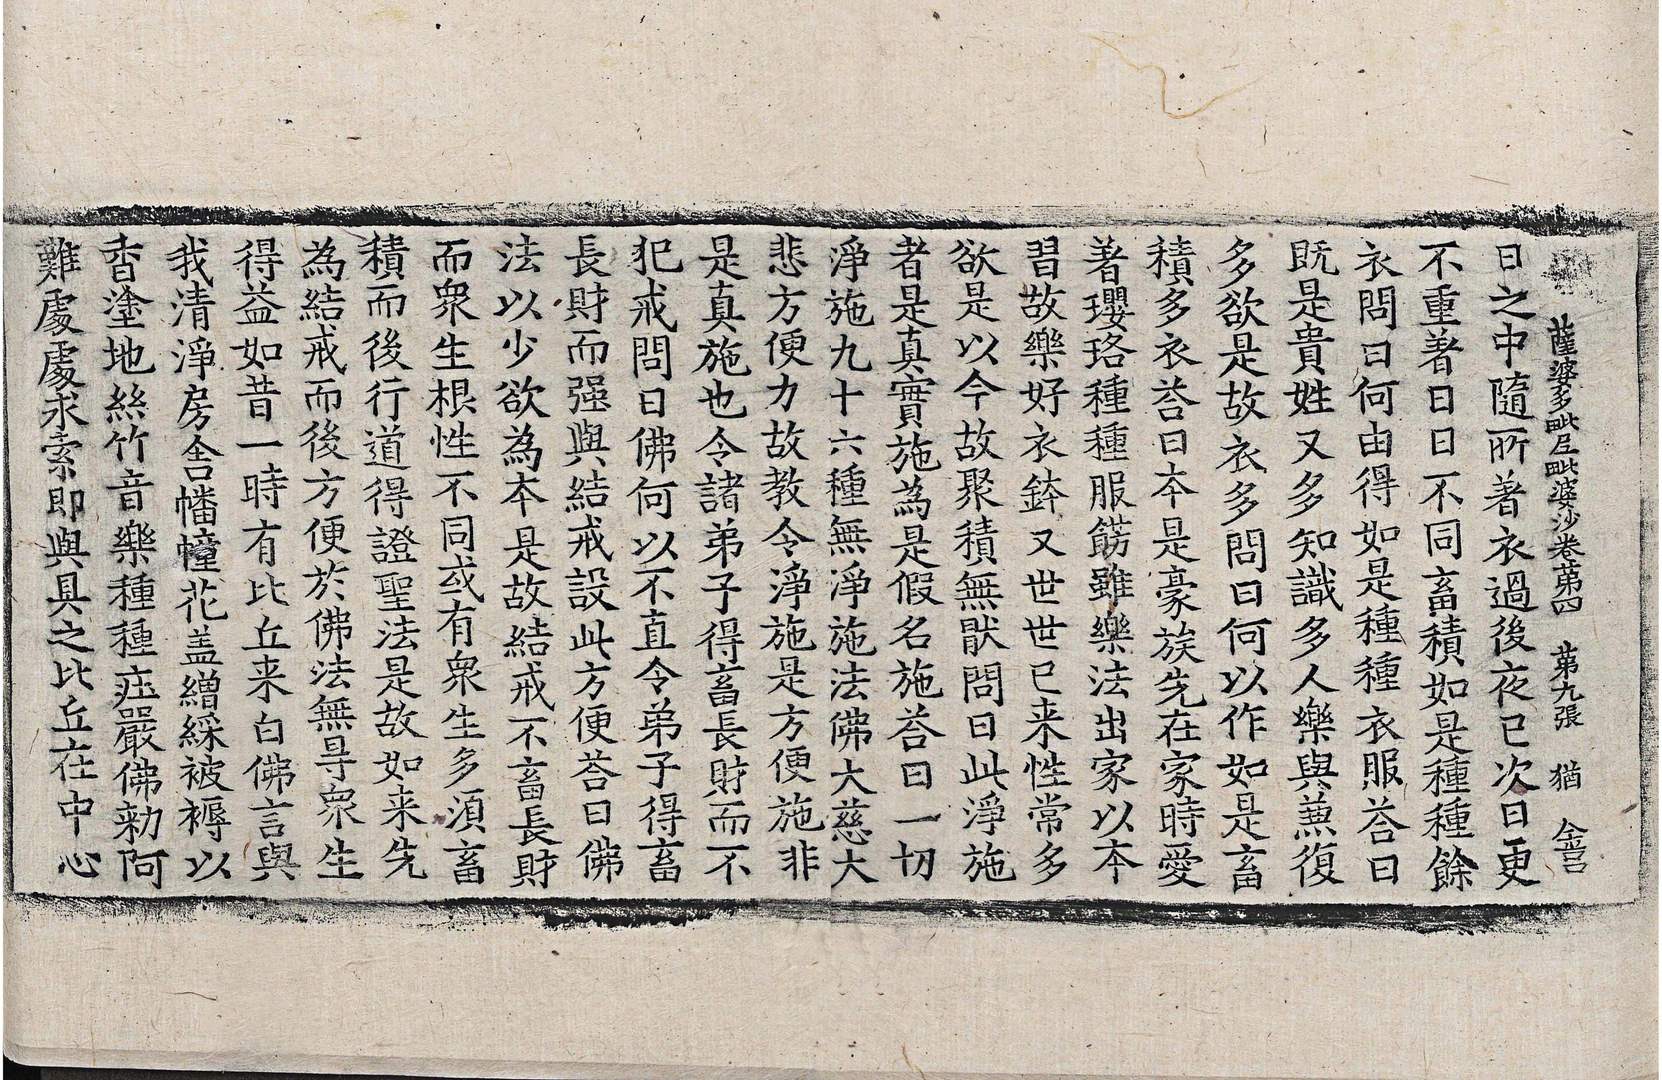 薩婆多毗尼毗婆沙卷苐四　苐九張　猶　金吕
日之中隨所著衣過後夜已次日更
不重著日日不同畜積如是種種餘
衣問曰何由得如是種種衣服荅曰
既是貴姓又多知識多人樂與兼復
多欲是故衣多問曰何以作如是畜
積多衣荅曰夲是豪族先在家時愛
著瓔珞種種服飾雖樂法出家以夲
習故樂好衣鉢又世世已来性常多
欲是以今故聚積無猒問曰此淨施
者是真實施為是假名施荅曰一切
淨施九十六種無淨施法佛大慈大
悲方便力故教令淨施是方便施非
是真施也令諸弟子得畜長財而不
犯戒問曰佛何以不直令弟子得畜
長財而强與結戒設此方便荅曰佛
法以少欲為夲是故結戒不畜長財
而衆生根性不同或有衆生多湏畜
積而後行道得證聖法是故如来先
為結戒而後方便於佛法無㝵衆生
得益如昔一時有比丘来白佛言與
我清淨房舍幡幢花盖繒綵被褥以
香塗地絲竹音樂種種疘嚴佛勑阿
難處處求索即與具之比丘在中心